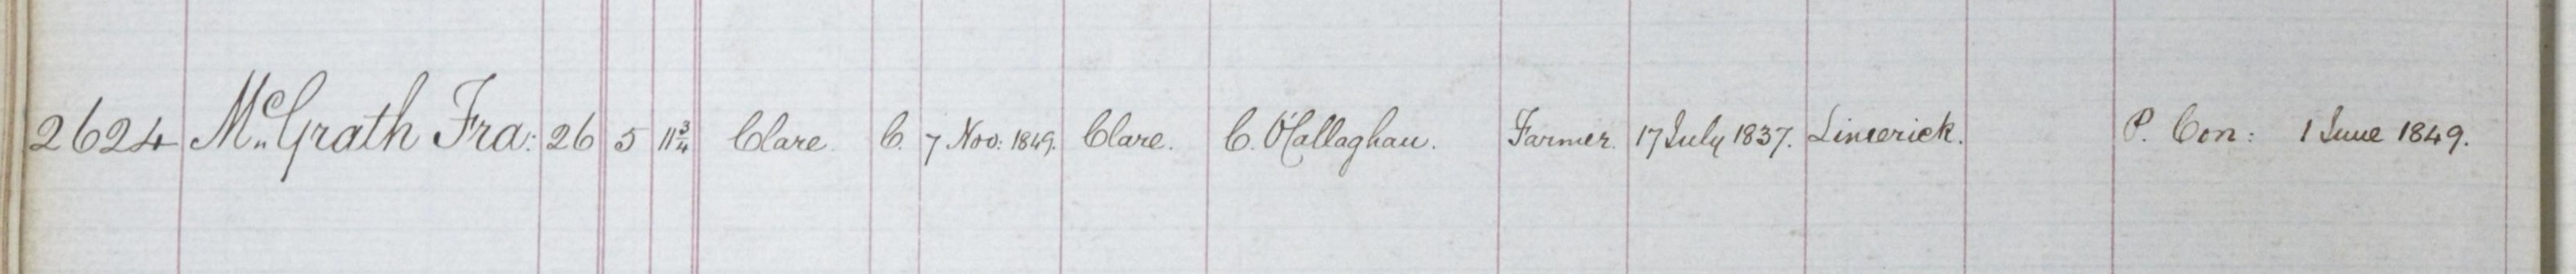 2624 McGrath Fra: 26 5 11¾ Clare. C. 7 Nov: 1849. Clare. C. O'Callaghan. Farmer. 17 July 1837. Limerick. P. Con: 1 June 1849.